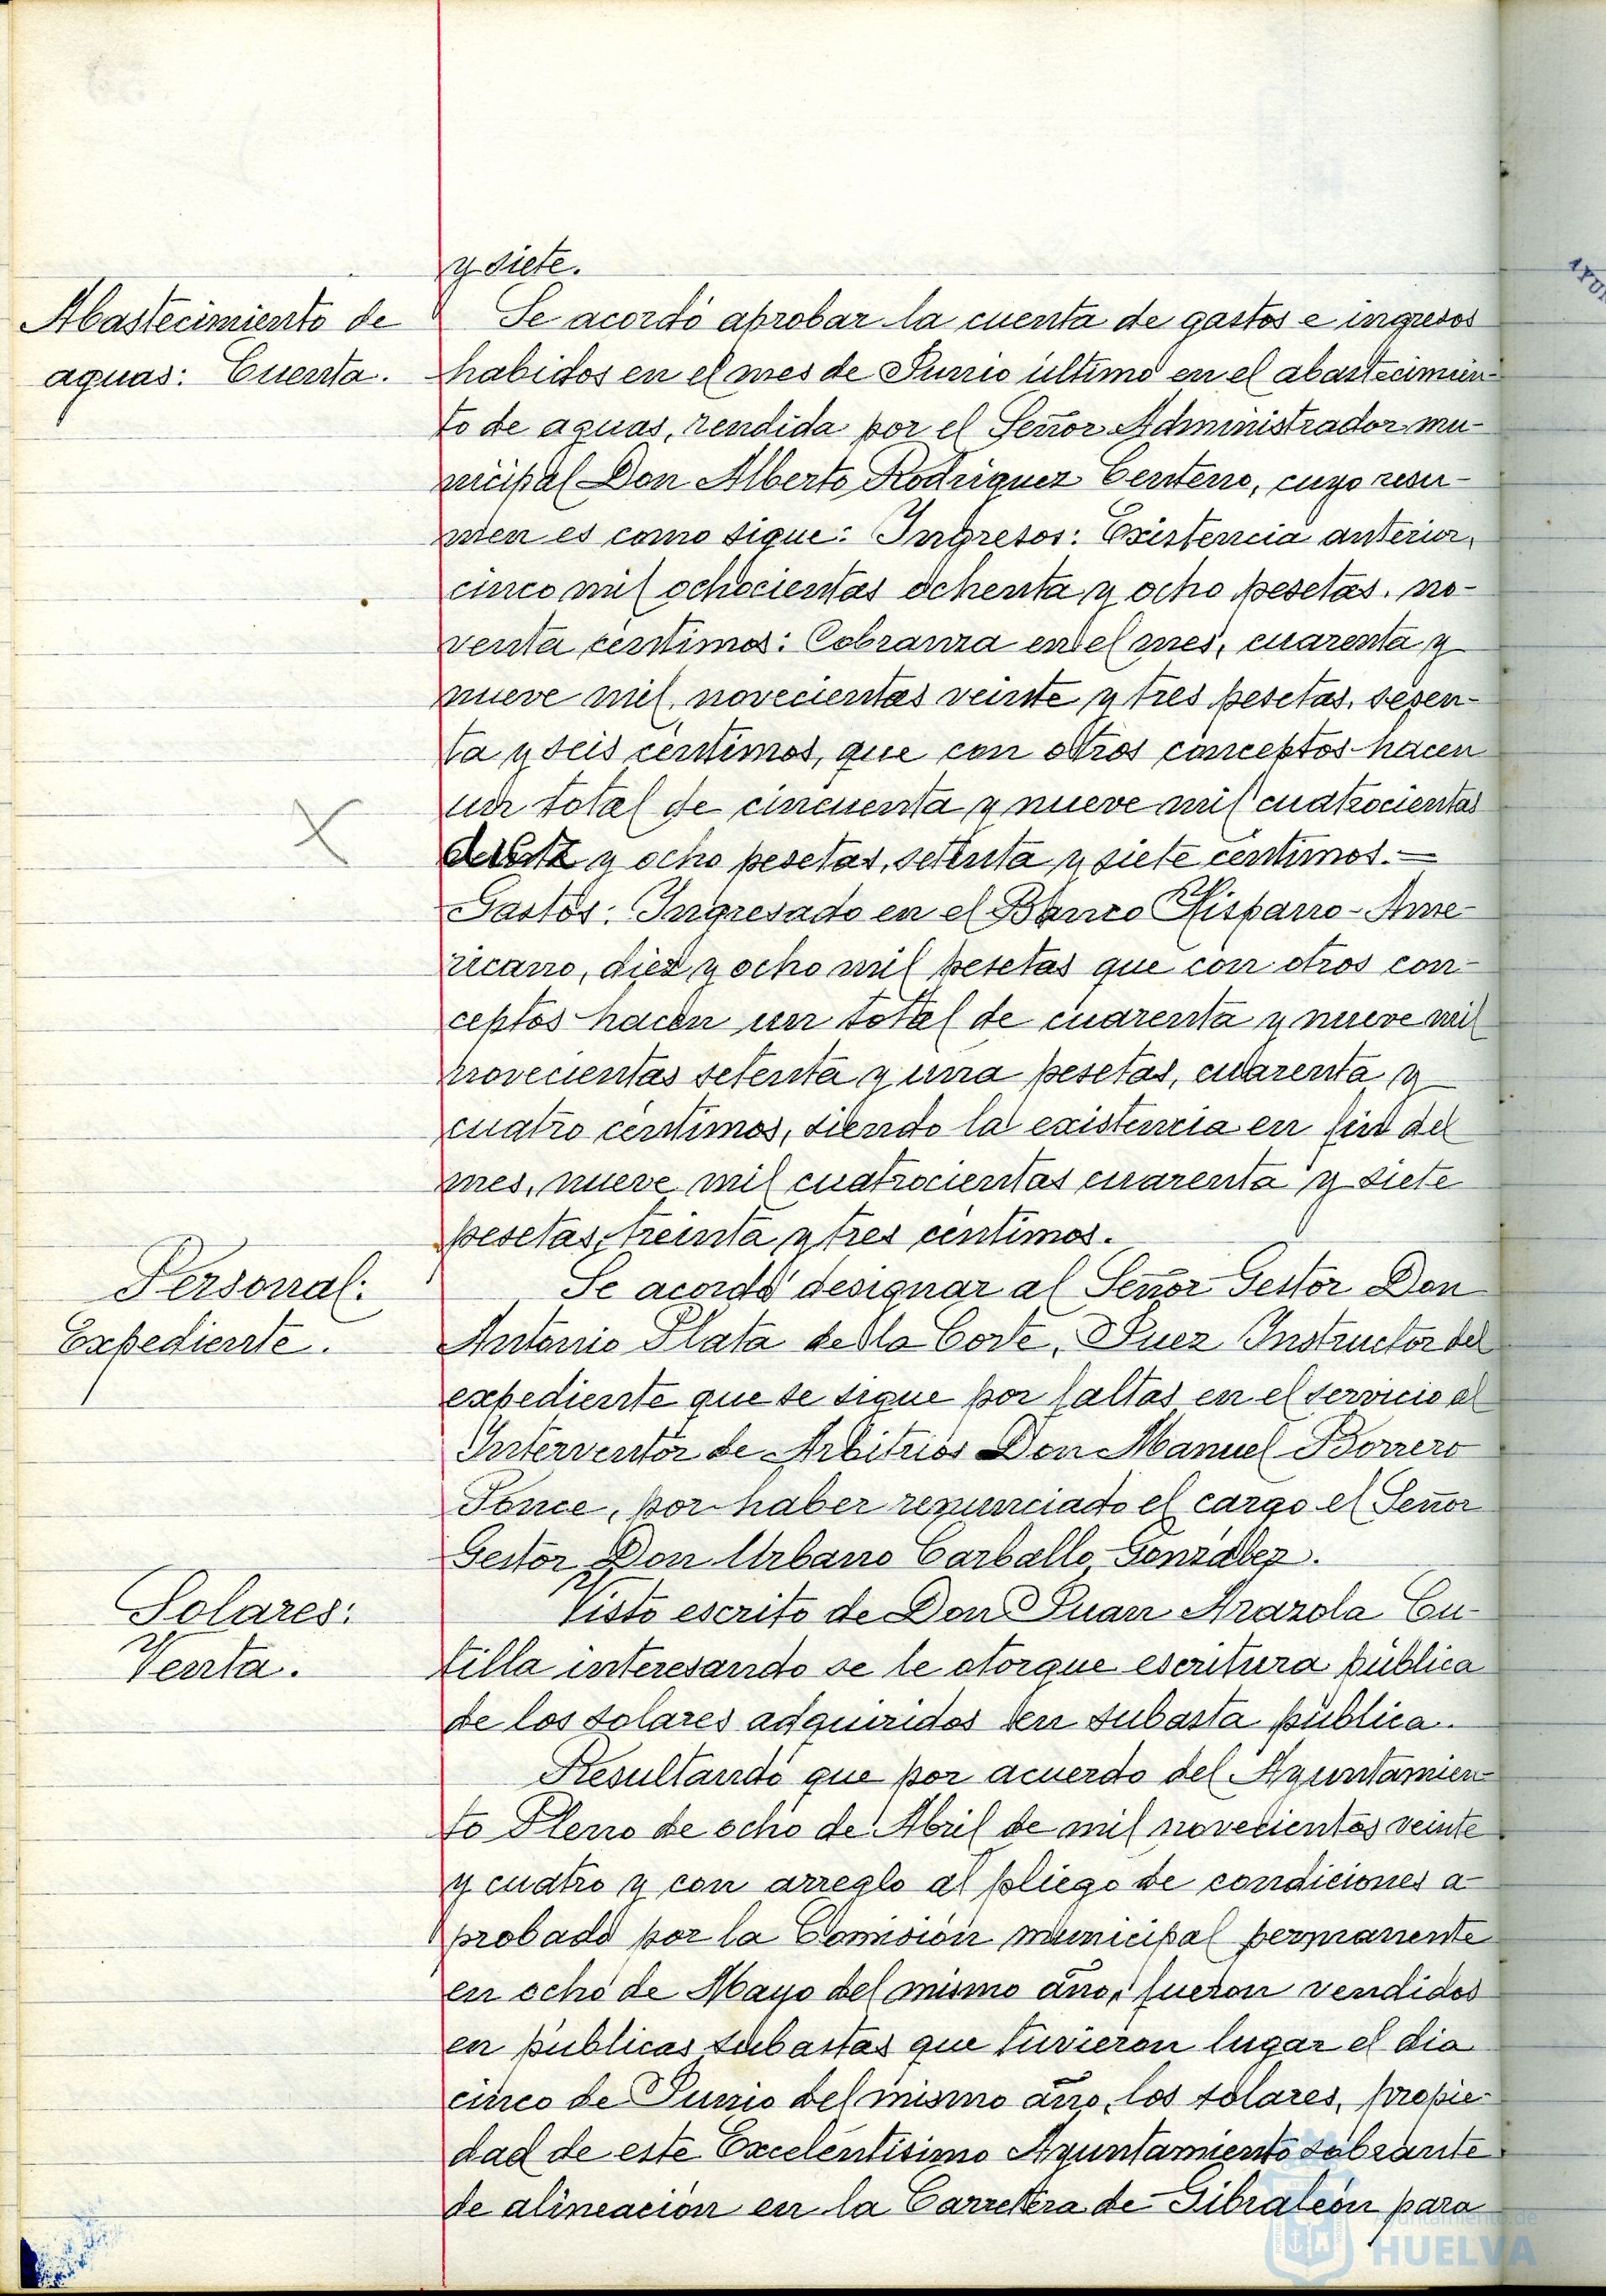 y siete.
Abastecimiento de
aguas: Cuenta.
Se acordó aprobar la cuenta de gastos e ingresos
habidos en el mes de Junio último en el abastecimien-
to de aguas, rendida por el Señor Administrador mu-
nicipal Don Alberto Rodriguez Centeno, cuyo resu-
men es como sigue: Ingresos: Existencia anterior,
cinco mil ochocientas ochenta y ocho pesetas, no-
venta centimos: Cobranza en el mes, cuarenta y
nueve mil, novecientas veinte y tres pesetas, sesen-
ta y seis centimos, que con otros conceptos hacen
un total de cincuenta y nueve mil cuatrocientas
y ocho pesetas, setenta y siete centimos.—
Gastos: Ingresado en el Banco Hispano-Ame-
ricano, diez y ocho mil pesetas que con otros con-
ceptos hacen un total de cuarenta y nueve mil
novecientas setenta y una pesetas, cuarenta y
cuatro centimos, siendo la existencia en fin del
mes, nueve mil cuatrocientas cuarenta y siete
pesetas, treinta y tres centimos.
Personal:
Expediente.
Se acordó designar al Señor Gestor Don
Antonio Plata de la Corte, Juez Instructor del
expediente que se sigue por faltas en el servicio al
Interventor de Arbitrios Don Manuel Borrero
Ponce, por haber renunciado el cargo el Señor
Gestor Don Urbano Carballo Gonzalez.
Solares:
Venta.
Visto escrito de Don Juan Arazola Cu-
tilla interesando se le otorgue escritura pública
de los solares adquiridos en subasta pública.
Resultando que por acuerdo del Ayuntamien-
to Pleno de ocho de Abril de mil novecientos veinte
y cuatro y con arreglo al pliego de condiciones a-
probado por la Comisión municipal permanente
en ocho de Mayo del mismo año, fueron vendidos
en públicas subastas que tuvieron lugar el dia
cinco de Junio del mismo año, los solares, propie-
dad de este Excelentisimo Ayuntamiento sobrante
de alineación en la Carretera de Gibraleón para
Ayuntamiento de
HUELVA